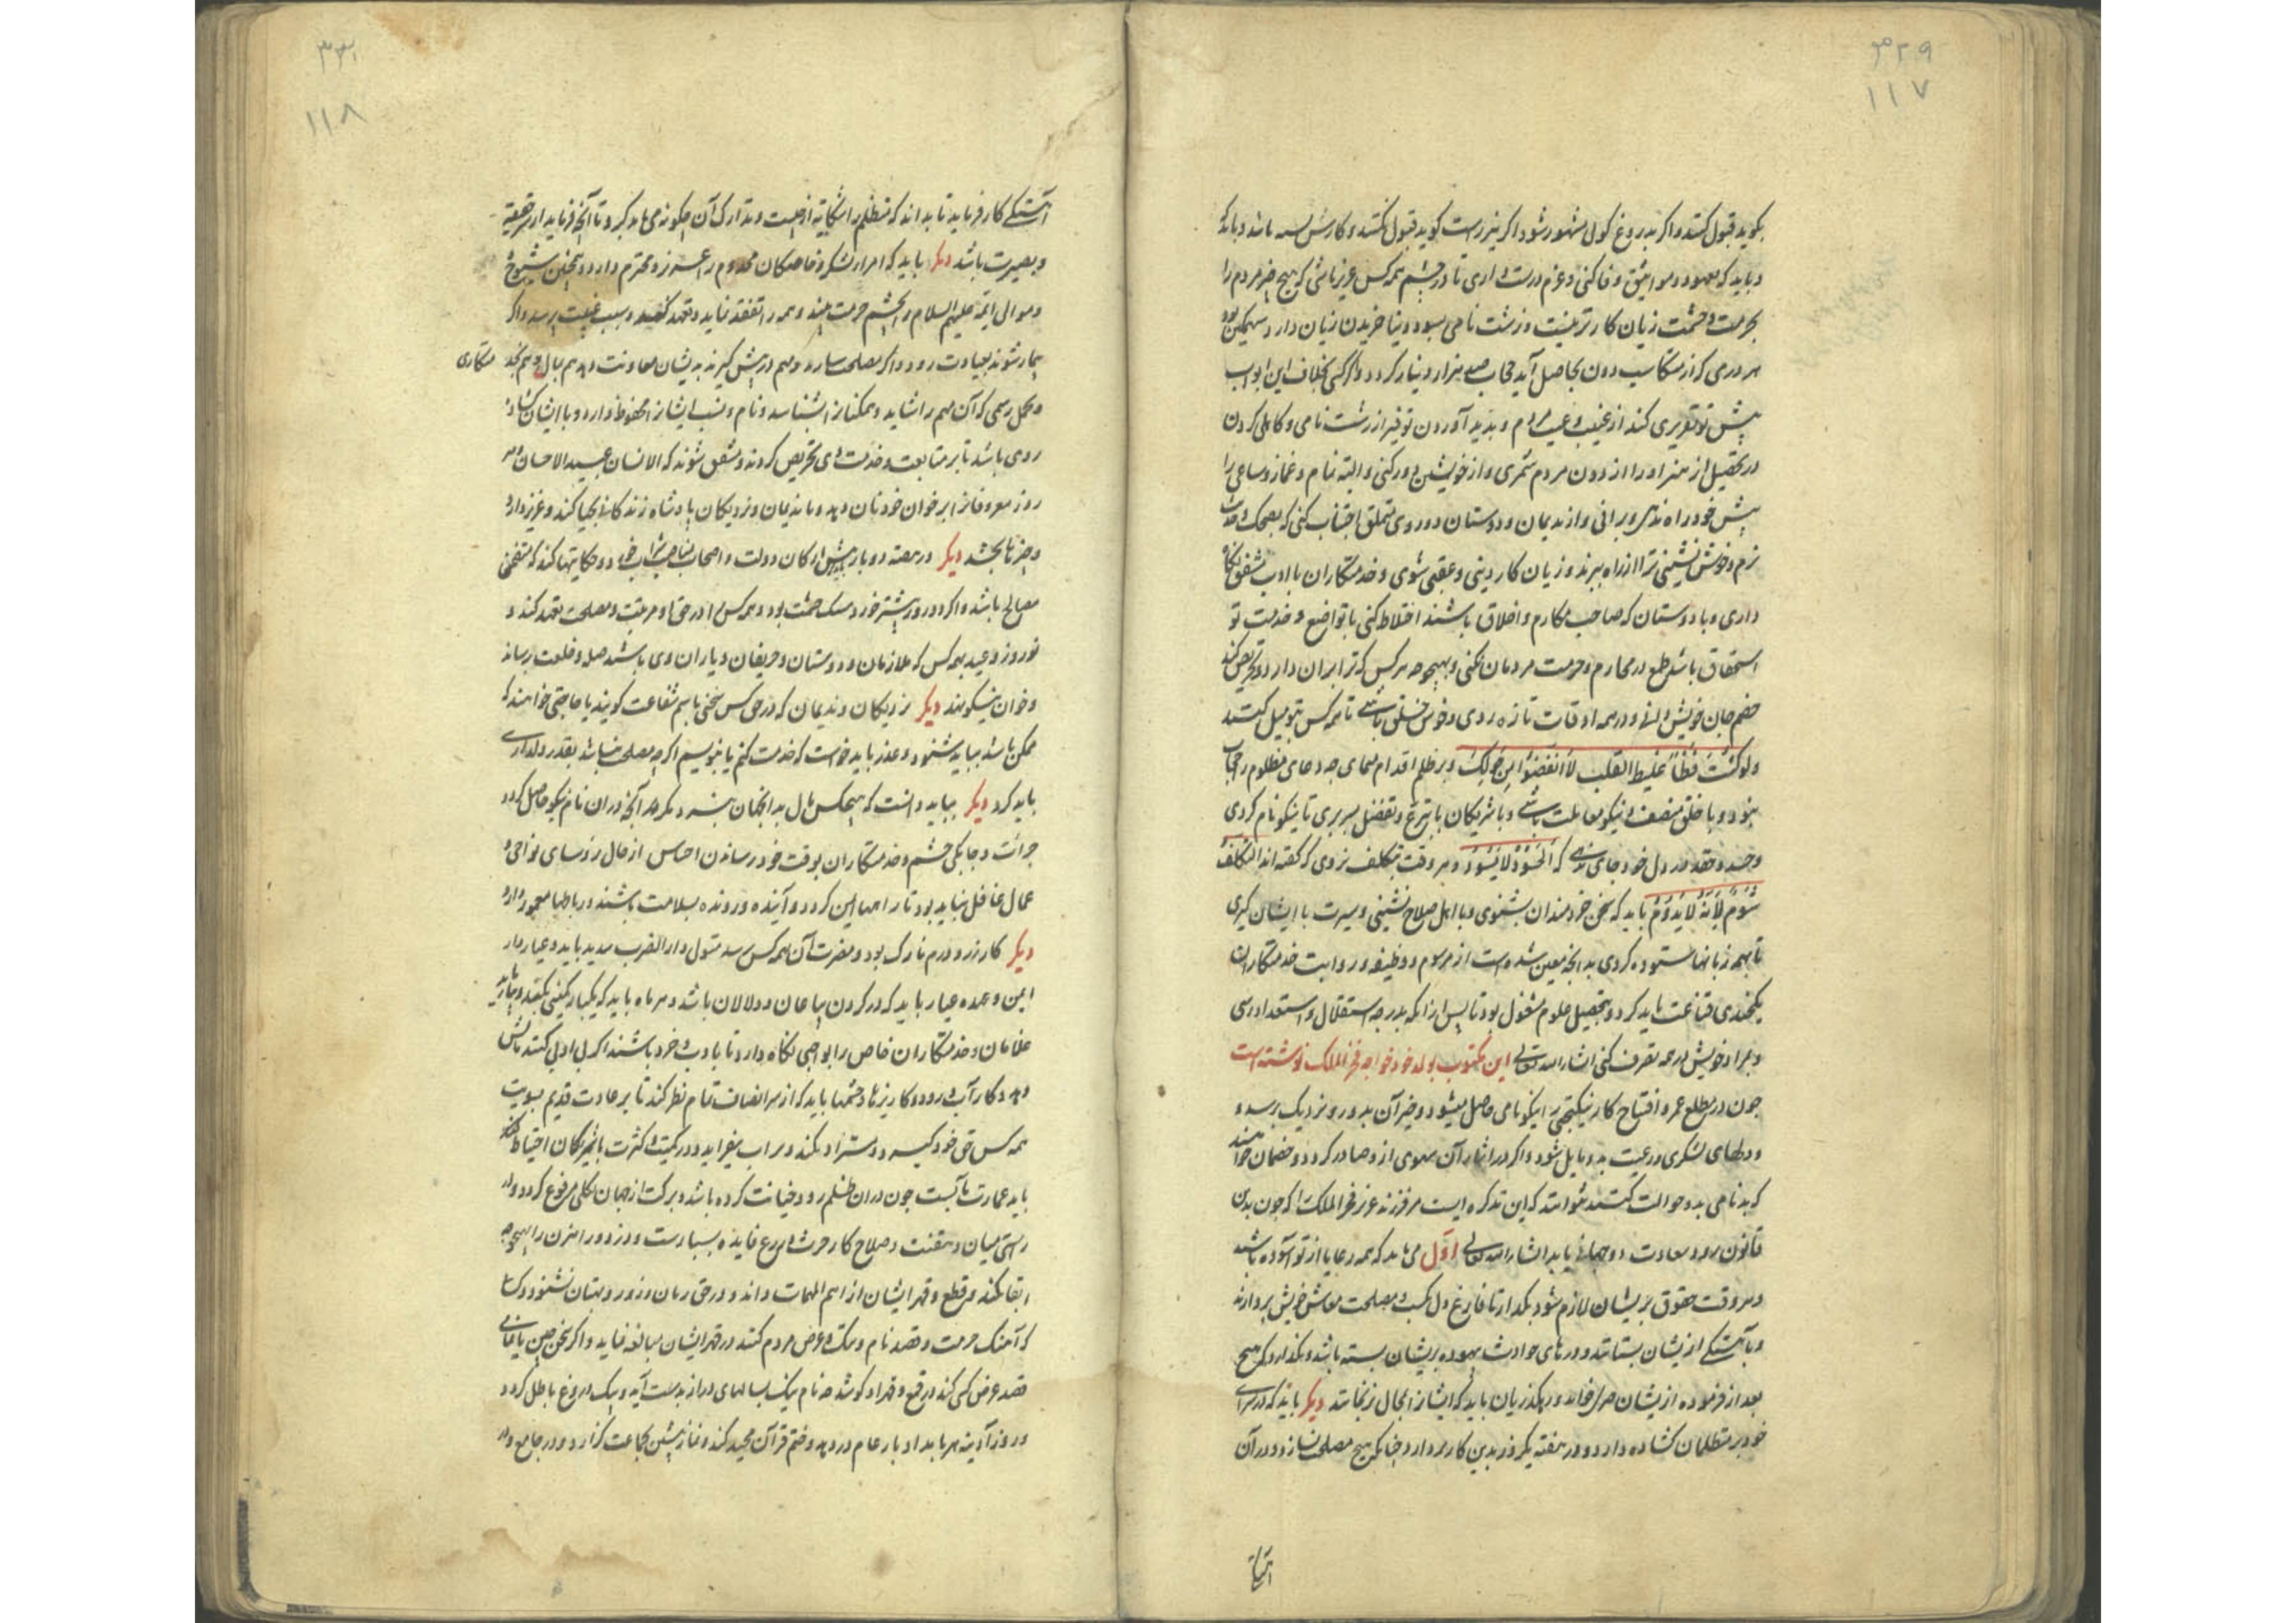 ۳۲۹
۱۱۷
بگوید قبول کنند و اگر بدروغ گوی مشهور شود اگر نیز راست گوید قبول نکنند و کارش بسته باشد و باید که
و باید که بعهود و مواثیق وفا کنی و عزم درست داری تا در چشم همه کس عزیز باشی که هیچ چیز مردم را
بحرمت و حشمت زیان کارتر نیست و زشت نامی بسود دنیا خریدن زیان دارد
هر درمی که از مکاسب دون بحاصل آید حجاب صد هزار دینار گردد و اگر کسی بخلاف این ابواب
پیش تو تقریری کند از غیب و عیب مردم و بدید آوردن توفیر از زشت نامی و کاهلی کردن
در تحصیل از هنر او را از دون مردم شمری و از خویشتن دور کنی و البته نمام و غماز و ساعی را
پیش خود راه ندهی و برانی و از ندیمان و دوستان دوروی متملق اجتناب کنی که بضحک و حدیث
نرم و خوش نشینی ترا از راه ببرند و زیان کار دینی و عقبی شوی و خدمتکاران با ادب مشفق نگاه
داری و با دوستان که صاحب مکارم و اخلاق باشند اختلاط کنی با تواضع و خدمت تو
استحقاق باشد طمع در محارم و حرمت مردمان نکنی و بهیچوجه هر کس که ترا بران دارد و تحریص کند
خصم جان خویش دانی و در همه اوقات تازه روی و خوش خلق باشی تا همه کس بتو میل کنند
وَلَوْ كُنْتَ فَظًّا غَلِيظَ الْقَلْبِ لَانْفَضُّوا مِنْ حَوْلِكَ و بر ظلم اقدام ننمای چه دعای مظلوم را حجاب
نبود و با خلق منصف و نیکو معاملت باشی و با شریکان با تبرع و تفضل بسر بری تا نیکو نام گردی
و حسد و حقد در دل خود جای ندهی که اَلْحَسُوْدُ لَا یَسُوْدُ و هر وقت بتکلف نزوی که گفته اند التَّکَلُّفُ
شُومٌ لِاَنَّهُ لَا یَدُوْمُ باید که سخن خردمندان بشنوی و با اهل صلاح نشینی و سیرت با ایشان گیری
تا بهمه زبانها ستوده گردی بدانچه معین شده است از مرسوم و وظیفه و رواتب خدمتکاران
یکچندی قناعت باید کرد و بتحصیل علوم مشغول بود تا پس از آنکه بدرجه استقلال و استعداد رسی
و بمراد خویش در همه تصرف کنی انشاء الله تعالی این مکتوب بولد خود خواجه فخر الملک نوشته است
چون در مطلع عمر و افتتاح کار نیکبختی را نیکونامی حاصل میشود و خبر آن بدور و نزدیک برسد و
و دلهای لشکری و رعیت بدو مایل شود و اگر در اثناء آن سهوی ازو صادر گردد و خصمان خواهند
که بدنامی بدو حوالت کنند نتوانند که این تذکره ایست مر فرزند عزیز فخر الملک را که چون بدین
قانون رود سعادت دو جهانی یابد انشاء الله تعالی اول می باید که همه رعایا از تو آسوده باشند
و هر وقت حقوق بر ایشان لازم شود بگذارد تا فارغ دل بکسب و مصلحت معاش خویش پردازند
و بآهستگی از ایشان بستانند و درهای حوادث بیهوده بریشان بسته باشد و نگذارد که هیچ
بعد از فرموده از ایشان خواند و رهگذریان باید که ایشانرا بحال نرنجانند دیگر باید که در سرای
خود بر متظلمان گشاده دارد و در هفته یک روز بدین کار پردازد چنانکه هیچ مصلحت نسازد و در آن
۳۳۰
۱۱۸
آهستگی کار فرماید تا بداند که متظلم را شکایت از چیست و تدارک آن چگونه می باید کرد و تا آنچه فرماید از سر حقیقت
و بصیرت باشد دیگر باید که امراء لشکر و خاصگان مخدوم را عزیز و محترم دارد و همچنین شیوخ
و موالی ائمه علیهم السلام را بچشم حرمت بیند و همه را تفقد نماید و تعهد کند و سبب غیبت پرسد و اگر
بیمار شوند بعیادت رود و اگر مصلحت سازند و مهم در پیش گیرند بدیشان معاونت دهد هم بمال و هم بخد
متکاری
و بکل رسمی که آن مهم را شاید و همگنانرا بشناسد و نام و نسب ایشانرا محفوظ دارد و با ایشان گشاده
روی باشد تا بر متابعت و خدمت وی تحریص گردند و مشفق شوند که الانسان عبید الاحسان و هر
روز معروفانرا بر خوان خود نان دهد و با ندیمان و نزدیکان پادشاه زندگانی نجیبا کند و عزیز دارد
و چیزها بخشد دیگر در هفته دو بار پیش ارکان دولت و اصحاب مناصب شراب خورد و حکایتها کند که متضمن
معالی باشد و اگر در روز بیشتر خورد مسک حشمت بود و همه کس را در حق او مرتبت و مصلحت تعهد کند و
نوروز و عید همه کس که ملازمان و دوستان و حریفان و یاران وی باشند صله و خلعت رساند
و خوان نیکو نهد دیگر نزدیکان و ندیمان که در حق کس سخنی باسم شفاعت گویند یا حاجتی خواهند که
ممکن باشد بباید شنود و عذر باید خواست که خدمت کنم یا بنویسیم اگر چه مصلحت نباشد بقدر دلداری
باید کرد دیگر بباید دانست که هیچکس مال بدان جهان نبرد مگر هر آنچه دران نام نیکو حاصل گردد
جرات و چابکی حشم و خدمتکاران بوقت خود رساندن احساس از حال رؤسای نواحی و
عمال غافل نباید بود تا راهها ایمن گردد و آینده و رونده بسلامت باشند و رباطها معمور دارد
دیگر کار زر و درم نازک بود و مضرت آن بهمه کس رسد متولی دار الضرب سدید باید و عیار دار
امین و عهده عیار باید که در گردن بیاعان و دلالان باشد و هر ماه باید که یکبار
غلامان و خدمتکاران خاص را بواجبی نگاه دارد تا با ادب و خرد باشند اگر بی ادبی کنند مالش
دهد و کار آب و رود و کاریزها و چشمها باید که از سر انصاف تمام نظر کند تا بر عادت قدیم بسویت
همه کس حق خود گیرد و دستزاد نکند و بر آب بیفزاید و در کمیت و کثرت با شریکان احتیاط کند
باید عمارت هاست چون دران ظلم رود و خیانت کرده باشد و برکت از جهان بکلی مرفوع گردد و در
راستی میان دهقنت و صلاح کار حرث و زرع فایده بسیارست و دزد و راهزن را بهیچوجه
ابقا نکند و قطع و قهر ایشان از اهم المهمات داند و در حق زنان و زور و بهتان نشنود و کسا
که آهنگ حرمت و قصد نام و ننگ و عرض مردم کنند در قهر ایشان مبالغه نماید و اگر سخن چین یا غمازی
قصد عرض کسی کند در قمع و قهر او کوشد چه نام نیک بسالهای دراز بدست آید و بیک دروغ باطل گردد
و روز آدینه هر بامداد بار عام در دهد و ختم قرآن مجید کند و نماز پیشین بجماعت گزارد و در جامع و در